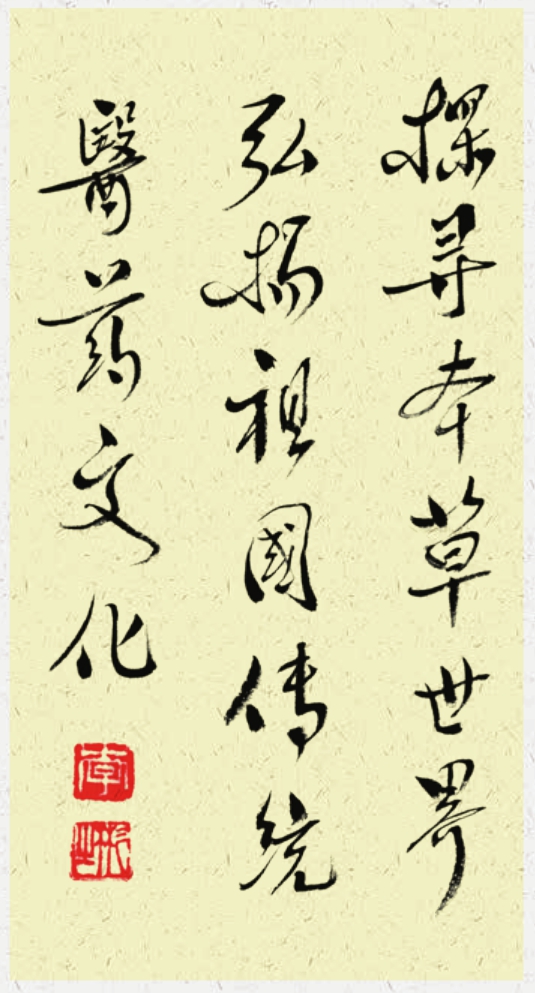 探寻本草世界
弘扬祖國傳统
醫药文化